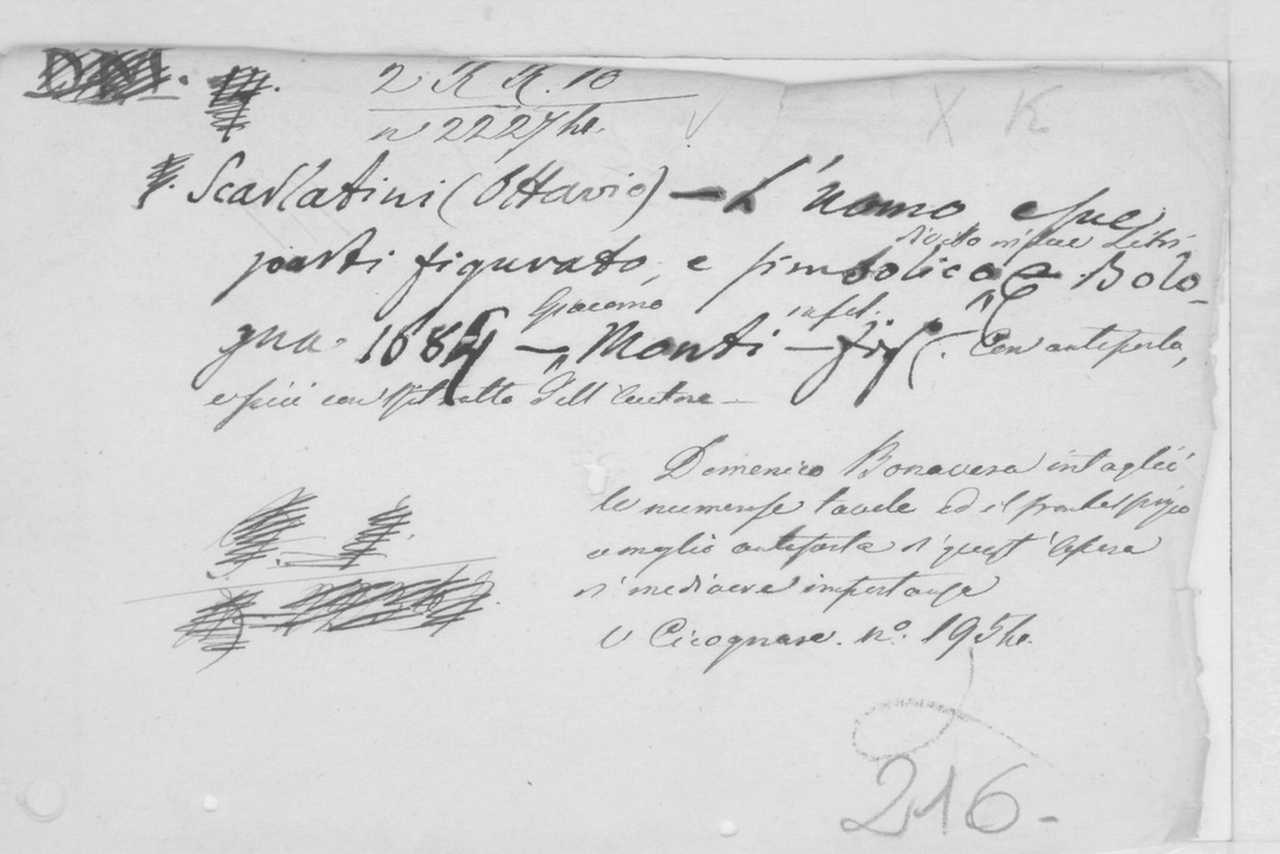 2 K K. 10
n 2227 he.
X K
Scarlatini (Ottavio) — L'Uomo, e sue
parti figurato, e simbolico diviso in due Libri Bolo-
gna 1684 — Giacomo Monti — in fol. fig. Con antiporta,
e Ritratto dell'Autore —
Domenico Bonavera intagliò
le numerose tavole ed il frontespizio
o meglio antiporta di quest'Opera
di mediocre importanza
V Cicognara. no. 195
216.-